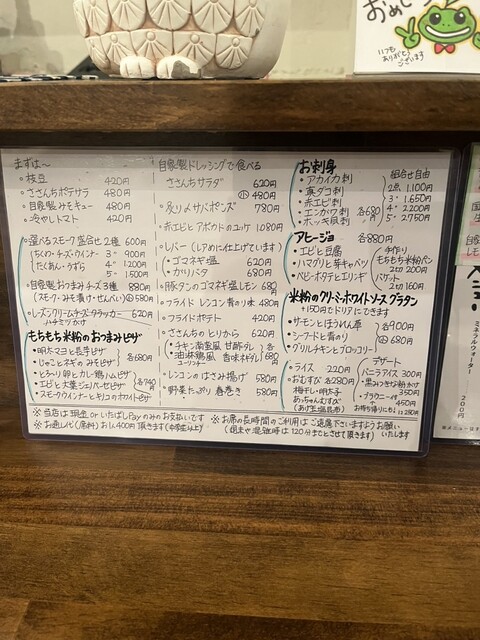 まずは〜
・枝豆 420円
・ささんちポテサラ 480円
・自家製みそキュー 480円
・冷やしトマト 420円
・選べるスモーク盛合せ2種 600円
(ちくわ・チーズ・ウインナー 3〃 900円
たくあん・うずら) 4〃 1.200円
5〃 1.500円
・自家製おつまみチーズ3種 880円
(スモーク・みそ漬け・せんべい) 580円
・レーズンクリームチーズクラッカー 620円
ハチミツがけ
もちもち米粉のおつまみピザ
・明太マヨと長芋ピザ
・じゃことネギのみそピザ 各680円
・エビと大葉ジェノベーゼピザ 各740円
・スモークウインナーとキノコのホワイトピザ
自家製ドレッシングで食べる
ささんちサラダ 620円
小 480円
・炙り〆サバポンズ 780円
・赤エビとアボカドのユッケ 1.080円
・レバー(レアめに仕上げています)
・ゴマネギ塩 620円
・カリバタ 680円
・豚タンのゴマネギ塩レモン 680円
・フライドレンコン青のり味 480円
・フライドポテト 420円
・ささんちのとりから 620円
・チキン南蛮風 甘酢ダレ
・油淋鶏風 香味ネギダレ 各680円
・レンコンのはさみ揚げ 580円
・野菜たっぷり春巻き 580円
お刺身
・アカイカ刺 組合せ自由
・真ダコ刺 2点 1.100円
・赤エビ刺 3〃 1.650円
・エンガワ刺 各680円 4〃 2.200円
・ホッキ貝刺 5〃 2.750円
アヒージョ 各880円
・エビと豆腐 手作り
・ハマグリと芽キャベツ もちもち米粉パン
・ベビーホタテとエリンギ 2切 200円
バゲット
2切 160円
米粉のクリーミィホワイトソースグラタン
+150円でドリアにできます
・サーモンとほうれん草 各900円
・シーフードと青のり
・グリルチキンとブロッコリー 各880円
・ライス 220円
・おむすび 各280円
梅干し・明太子
デザート
バニラアイス 300円
・黒みつきな粉かけ 350円
・ブラウニー付 450円
※当店は現金orいたばしPayのみのお支払いです
※お通し代(席料)お1人400円頂きます(中学生以上)
※お席の長時間のご利用はご遠慮下さいますようお願い
(週末や混雑時は120分までとさせて頂きます) いたします
いつも
ありがとう
ございます
ミネラルウォーター
200円